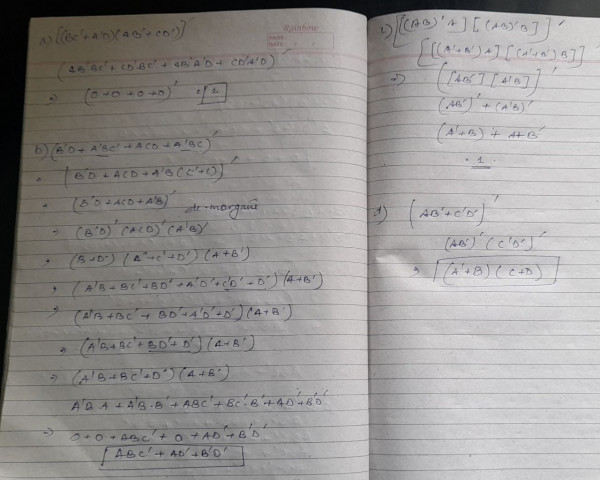 Rainbow
PAGE:
DATE: / /
a) [(BC'+A'D)(AB'+CD')]'
(AB'BC'+CD'BC'+AB'A'D+CD'A'D)'
⇒ (0+0+0+0)' = 1
b) (B'D+A'BC'+ACD+A'BC)'
= [B'D+ACD+A'B(C'+C)]'
= (B'D+ACD+A'B)'
de-morgan's
= (B'D)'(ACD)'(A'B)'
= (B+D')(A'+C'+D')(A+B')
= (A'B+BC'+BD'+A'D'+C'D'+D')(A+B')
⇒ (A'B+BC'+BD'+A'D'+D')(A+B')
⇒ (A'B+BC'+BD'+D')(A+B')
⇒ (A'B+BC'+D')(A+B')
A'BA+A'B·B'+ABC'+BC'·B'+AD'+B'D'
⇒ 0+0+ABC'+0+AD'+B'D'
ABC'+AD'+B'D'
c) [[(AB)'A][(AB)'B]]'
[[(A'+B')A][(A'+B')B]]'
⇒ ([AB'][A'B])'
(AB')'+(A'B)'
(A'+B)+A+B'
= 1
d) (AB'+C'D')'
(AB')'(C'D')'
⇒ (A'+B)(C+D)